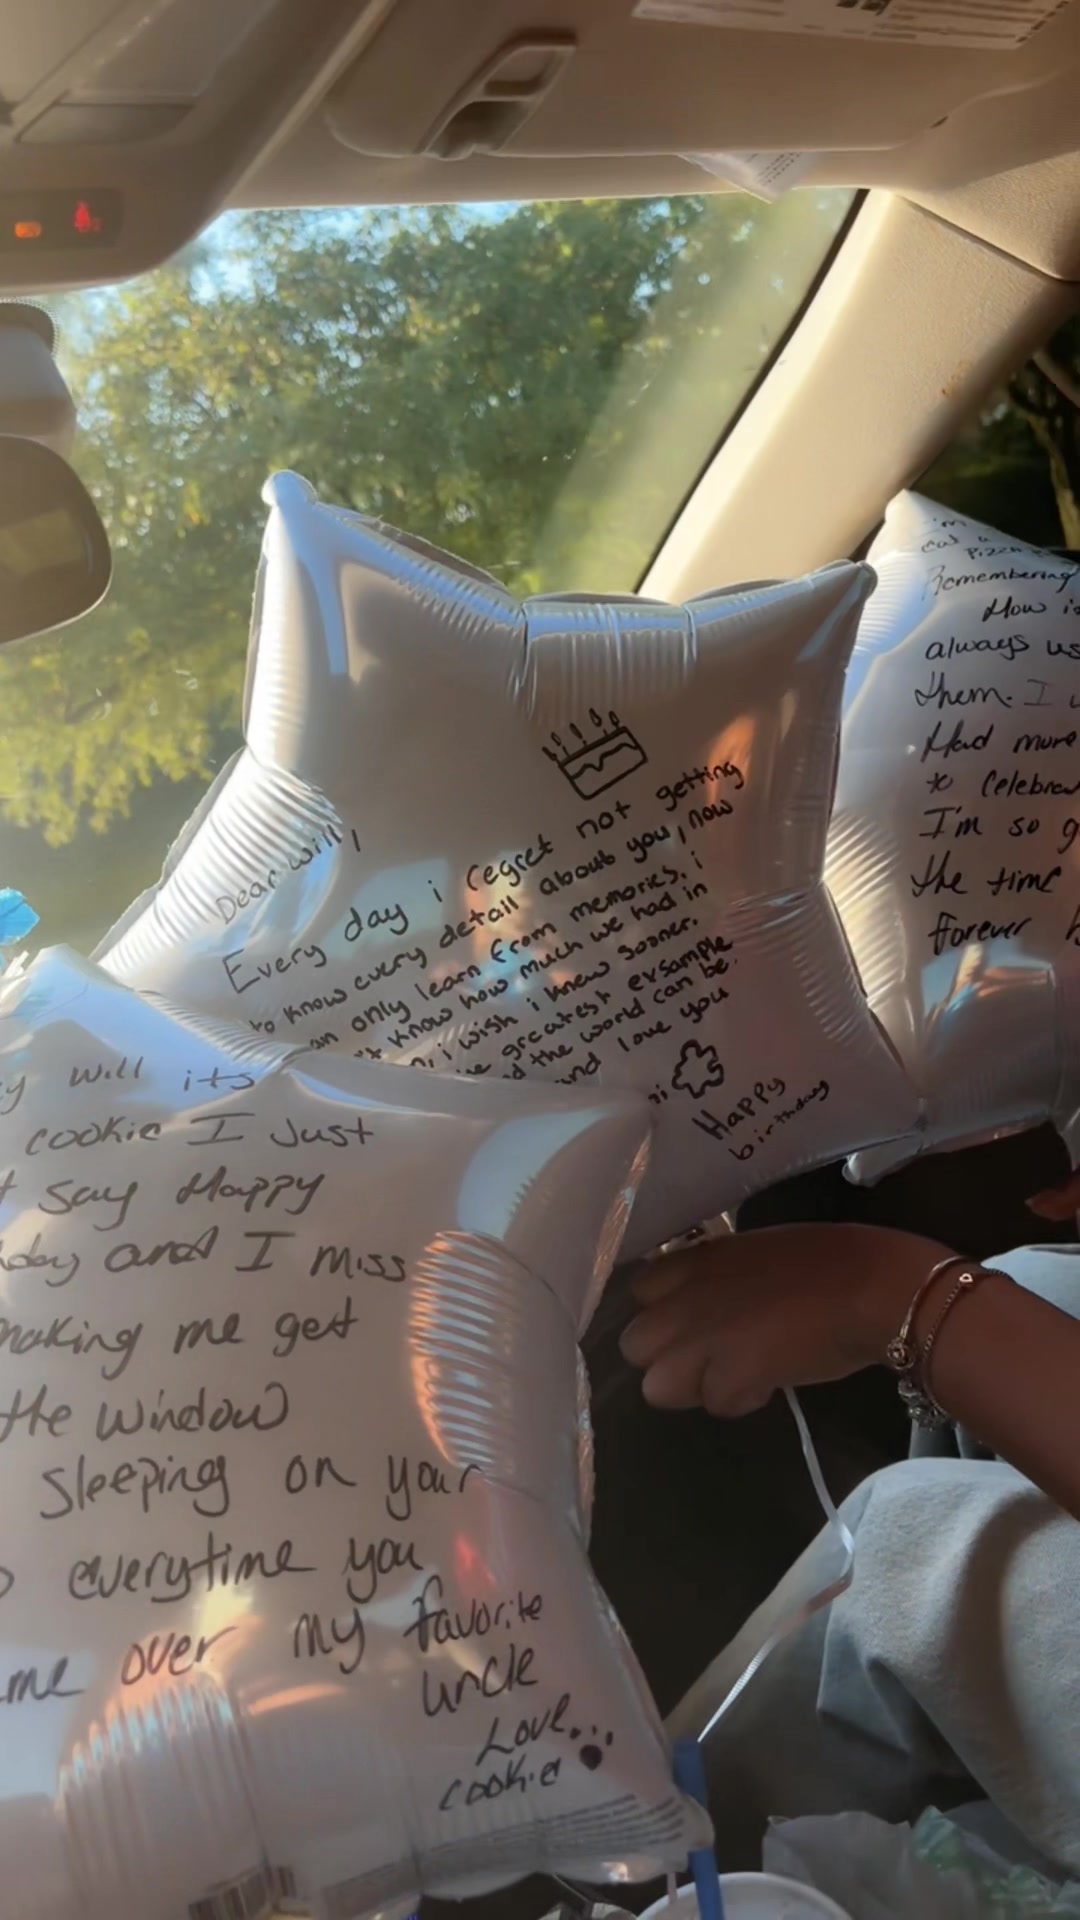 Dear will,
Every day i regret not getting
to know every detail about you, now
an only learn from memories. i
't know how much we had in
i wish i knew sooner.
greatest exsample
the world can be.
and love you
Happy
birthday
will its
cookie I Just
Say Happy
day and I miss
making me get
the window
sleeping on your
everytime you
me over my favorite
uncle
Love...
cookie
I'm
eat a
Pizza
Remembering
How is
always us
them. I
Had more
to Celebra
I'm so g
the time
forever